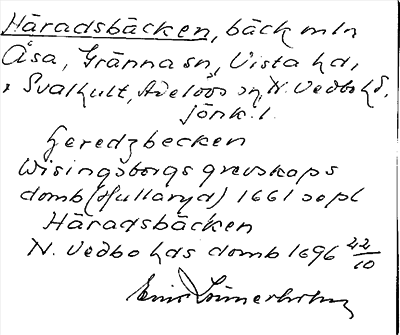 Häradsbäcken, bäck mln
Åsa, Gränna sn, Vista hd,
o Svalhult, Adelövs sn, N. Vedbo hd.
Jönk. l.
Heredzbecken
Wisingsborgs grevskaps
domb (Hullaryd) 1661 sept
Häradsbäcken
N. Vedbo hds domb 1696 22/10